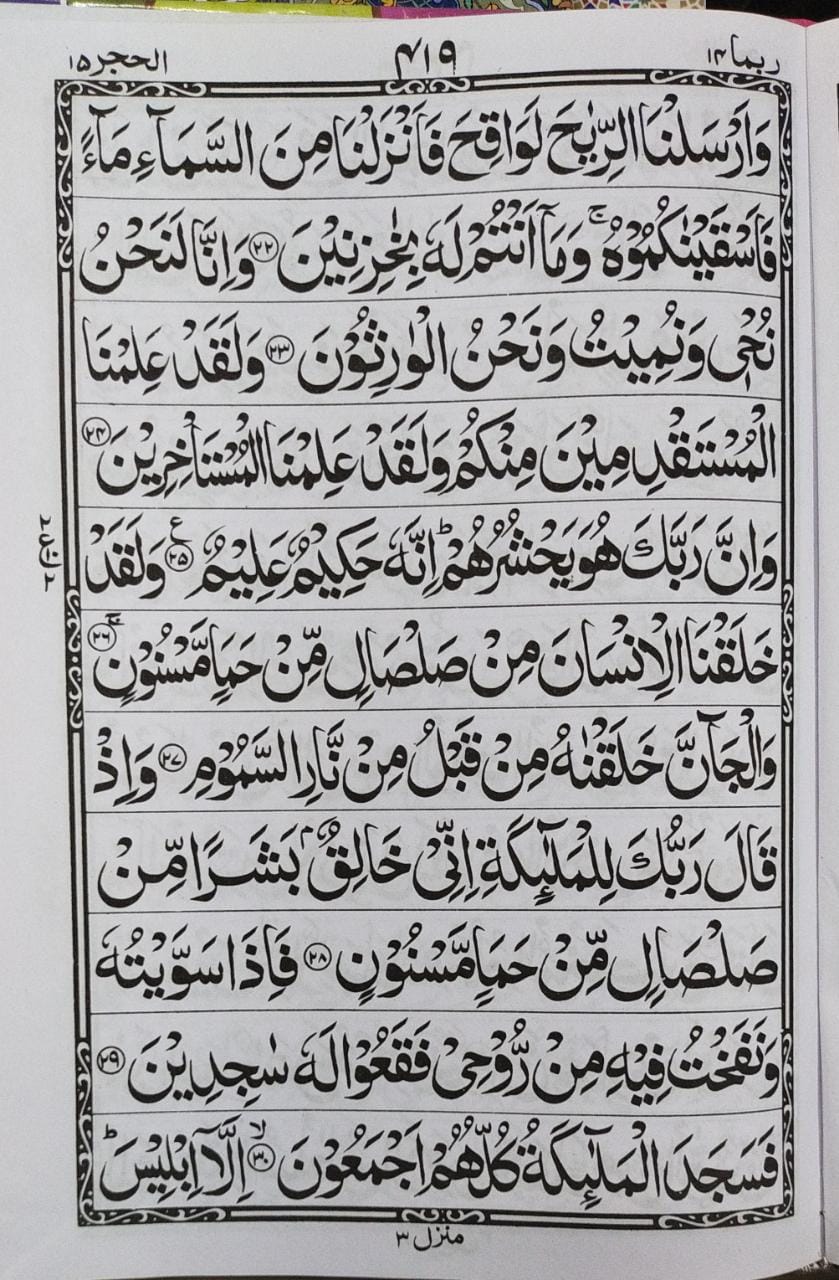 ربما ۱۴ ۴۱۹ الحجر ۱۵
وَاَرْسَلْنَا الرِّيٰحَ لَوَاقِحَ فَاَنْزَلْنَا مِنَ السَّمَآءِ مَآءً
فَاَسْقَيْنٰكُمُوْهُ ۚ وَمَآ اَنْتُمْ لَهٗ بِخٰزِنِيْنَ ﴿۲۲﴾ وَاِنَّا لَنَحْنُ
نُحْيٖ وَنُمِيْتُ وَنَحْنُ الْوٰرِثُوْنَ ﴿۲۳﴾ وَلَقَدْ عَلِمْنَا
الْمُسْتَقْدِمِيْنَ مِنْكُمْ وَلَقَدْ عَلِمْنَا الْمُسْتَاْخِرِيْنَ ﴿۲۴﴾
وَاِنَّ رَبَّكَ هُوَ يَحْشُرُهُمْ ؕ اِنَّهٗ حَكِيْمٌ عَلِيْمٌ ﴿۲۵﴾ ع وَلَقَدْ
خَلَقْنَا الْاِنْسَانَ مِنْ صَلْصَالٍ مِّنْ حَمَاٍ مَّسْنُوْنٍ ۚ ﴿۲۶﴾
وَالْجَآنَّ خَلَقْنٰهُ مِنْ قَبْلُ مِنْ نَّارِ السَّمُوْمِ ﴿۲۷﴾ وَاِذْ
قَالَ رَبُّكَ لِلْمَلٰٓئِكَةِ اِنِّيْ خَالِقٌۢ بَشَرًا مِّنْ
صَلْصَالٍ مِّنْ حَمَاٍ مَّسْنُوْنٍ ﴿۲۸﴾ فَاِذَا سَوَّيْتُهٗ
وَنَفَخْتُ فِيْهِ مِنْ رُّوْحِيْ فَقَعُوْا لَهٗ سٰجِدِيْنَ ﴿۲۹﴾
فَسَجَدَ الْمَلٰٓئِكَةُ كُلُّهُمْ اَجْمَعُوْنَ ﴿۳۰﴾ ۙ اِلَّاۤ اِبْلِيْسَ ؕ
منزل ۳